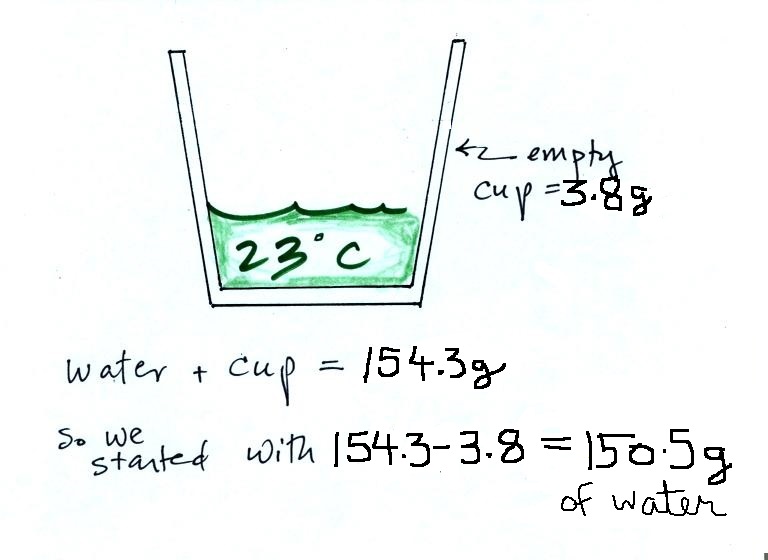 empty
cup = 3.8 g
23°C
water + cup = 154.3g
so we
started with 154.3-3.8 = 150.5g
of water